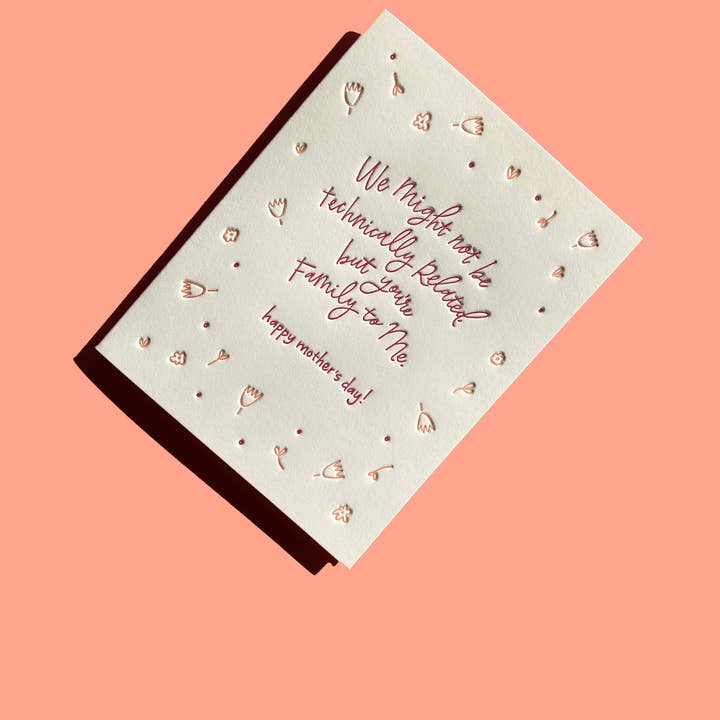 We Might not be
technically Related,
but you're
Family to Me.
happy mother's day!